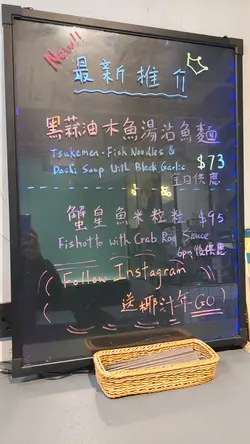 New!!
最新推介
黑蒜油木魚湯沾魚麵
Tsukemen - Fish Noodles &
Dashi Soup With Black Garlic $73
全日供應
蟹皇魚米粒粒 $95
Fishotto with Crab Roe Sauce
6pm後供應
Follow Instagram
送椰汁年GO